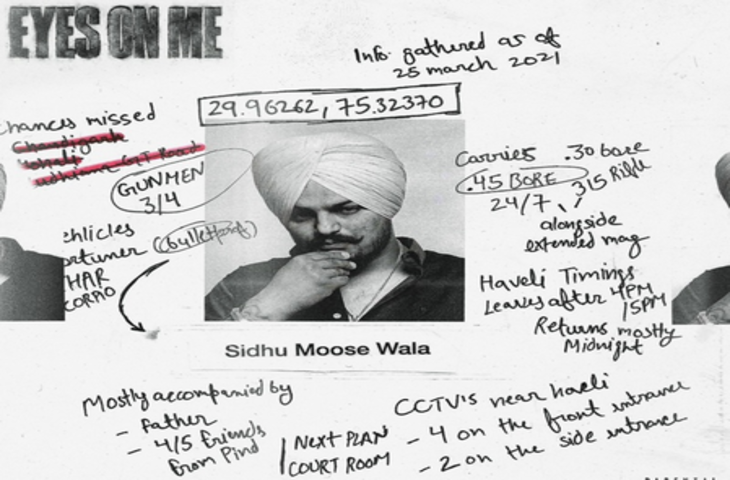 EYES ON ME
Info gathered as of
25 march 2021
29.96262, 75.32370
Chances missed
Chandigarh
Mohali
Ludhiana GT Road
GUNMEN
3/4
ehlicles
ortuner (bulletproof)
HAR
CORPIO
Carries .30 bore
.45 BORE
315 Rifle
24/7
alongside
extended mag
Haveli Timings
Leaves after 4PM
/5PM
Returns mostly
Midnight
Sidhu Moose Wala
Mostly accompanied by
- Father
- 4/5 friends
from Pind
NEXT PLAN
COURT ROOM
CCTV's near haveli
- 4 on the front entrance
- 2 on the side entrance